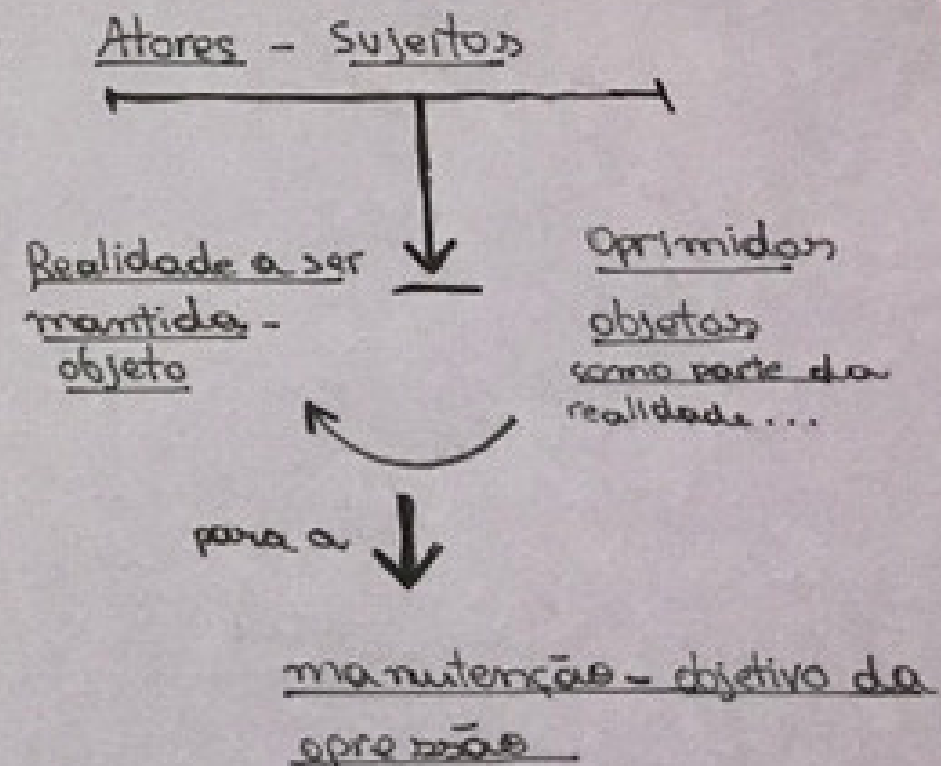 Atores - Sujeitos
Realidade a ser
mantida -
objeto
Oprimidos
objetos
como parte da
realidade...
para a
manutenção - objetivo da
opressão